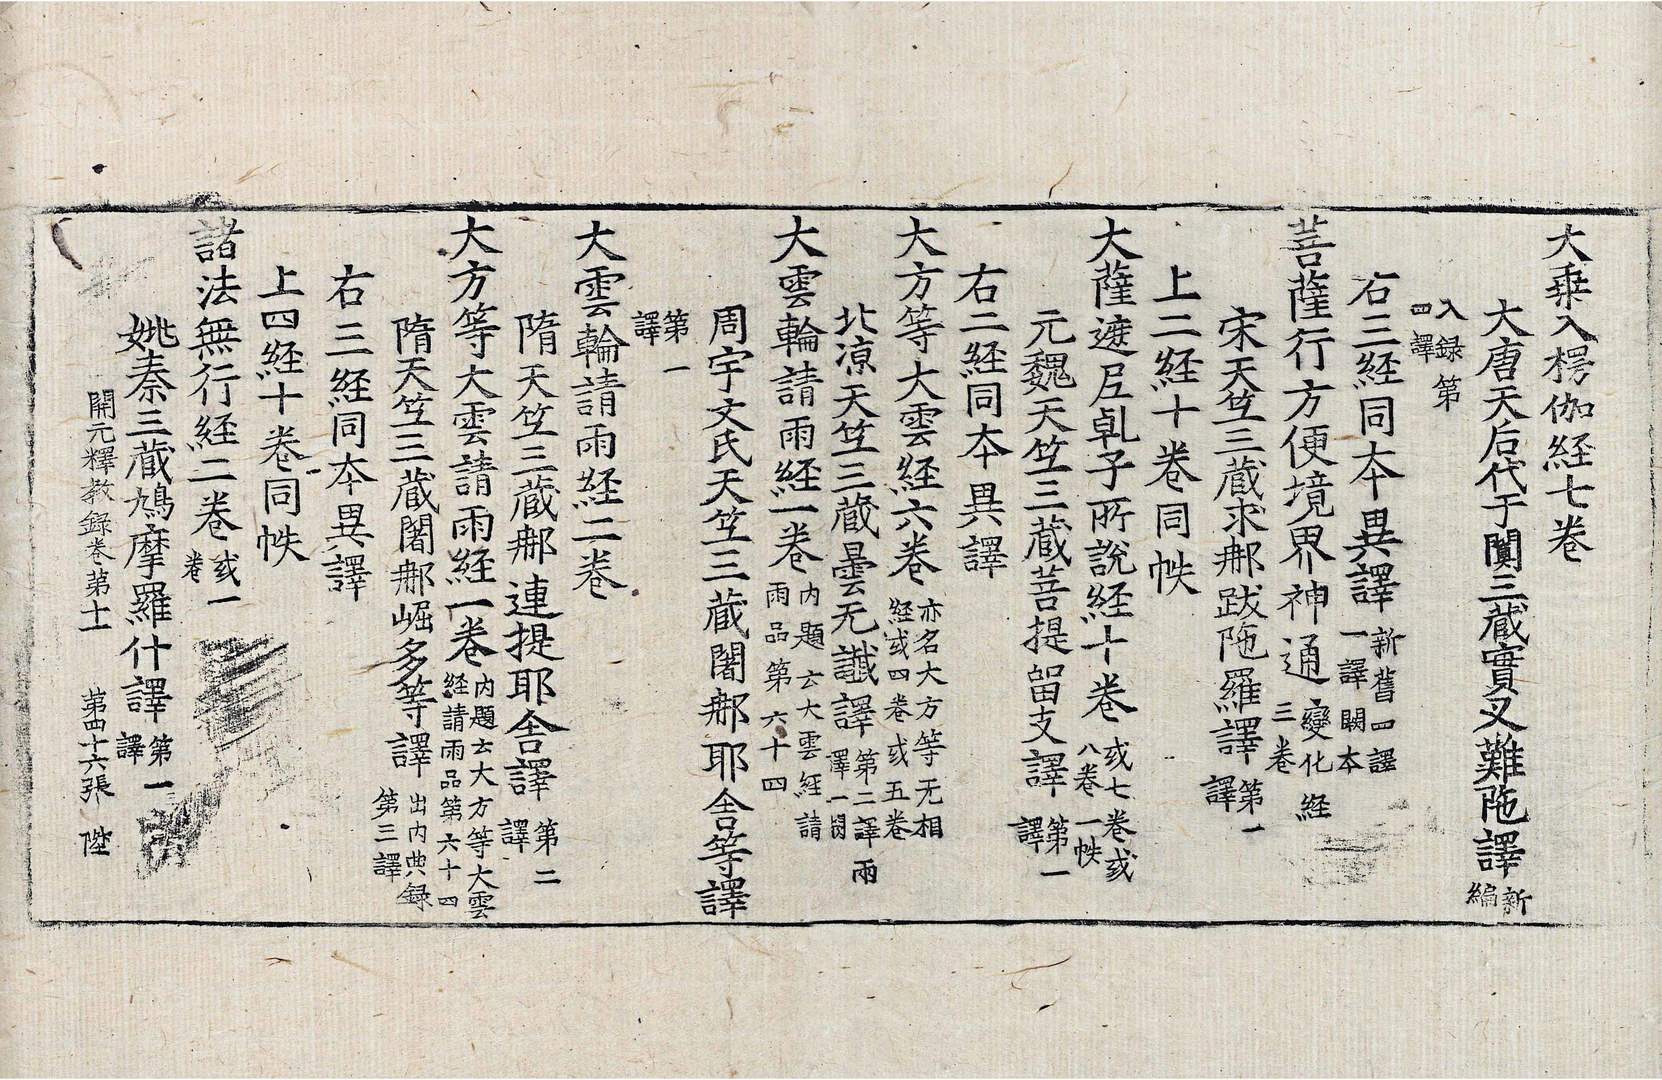 大乗入楞伽経七巻
大唐天后代于闐三蔵實叉難陁譯新編
入録第四譯
右三経同本異譯新舊四譯一譯闕本
菩薩行方便境界神通變化経三巻
宋天竺三蔵求郍跋陁羅譯第一譯
上二経十巻同帙
大薩遮尼乹子所說経十巻或七巻或八巻一帙
元魏天竺三蔵菩提留支譯第一譯
右二経同本異譯
大方等大雲経六巻亦名大方等无相経或四巻或五巻
北涼天竺三蔵曇无讖譯第二譯兩譯一闕
大雲輪請雨経一巻内題云大雲経請雨品第六十四
周宇文氏天竺三蔵闍郍耶舎等譯
第一譯
大雲輪請雨経二巻
隋天竺三蔵郍連提耶舎譯第二譯
大方等大雲請雨経一巻内題云大方等大雲経請雨品第六十四
隋天竺三蔵闍郍崛多等譯出内典録第三譯
右三経同本異譯
上四経十巻同帙
諸法無行経二巻或一巻
姚秦三蔵鳩摩羅什譯第一譯
開元釋教録巻第十一 第四十六張 陛